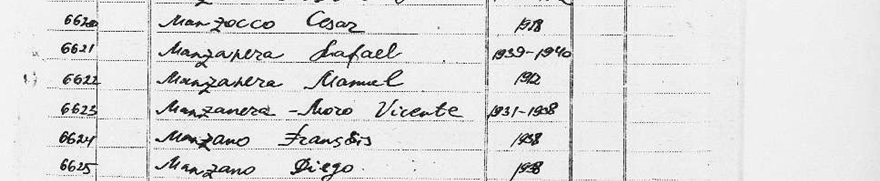 6620 Manzocco Cesar 1938
6621 Manzanera Rafael 1939-1940
6622 Manzanera Manuel 1912
6623 Manzanera-Moro Vicente 1931-1938
6624 Manzano François 1938
6625 Manzano Diego 1938